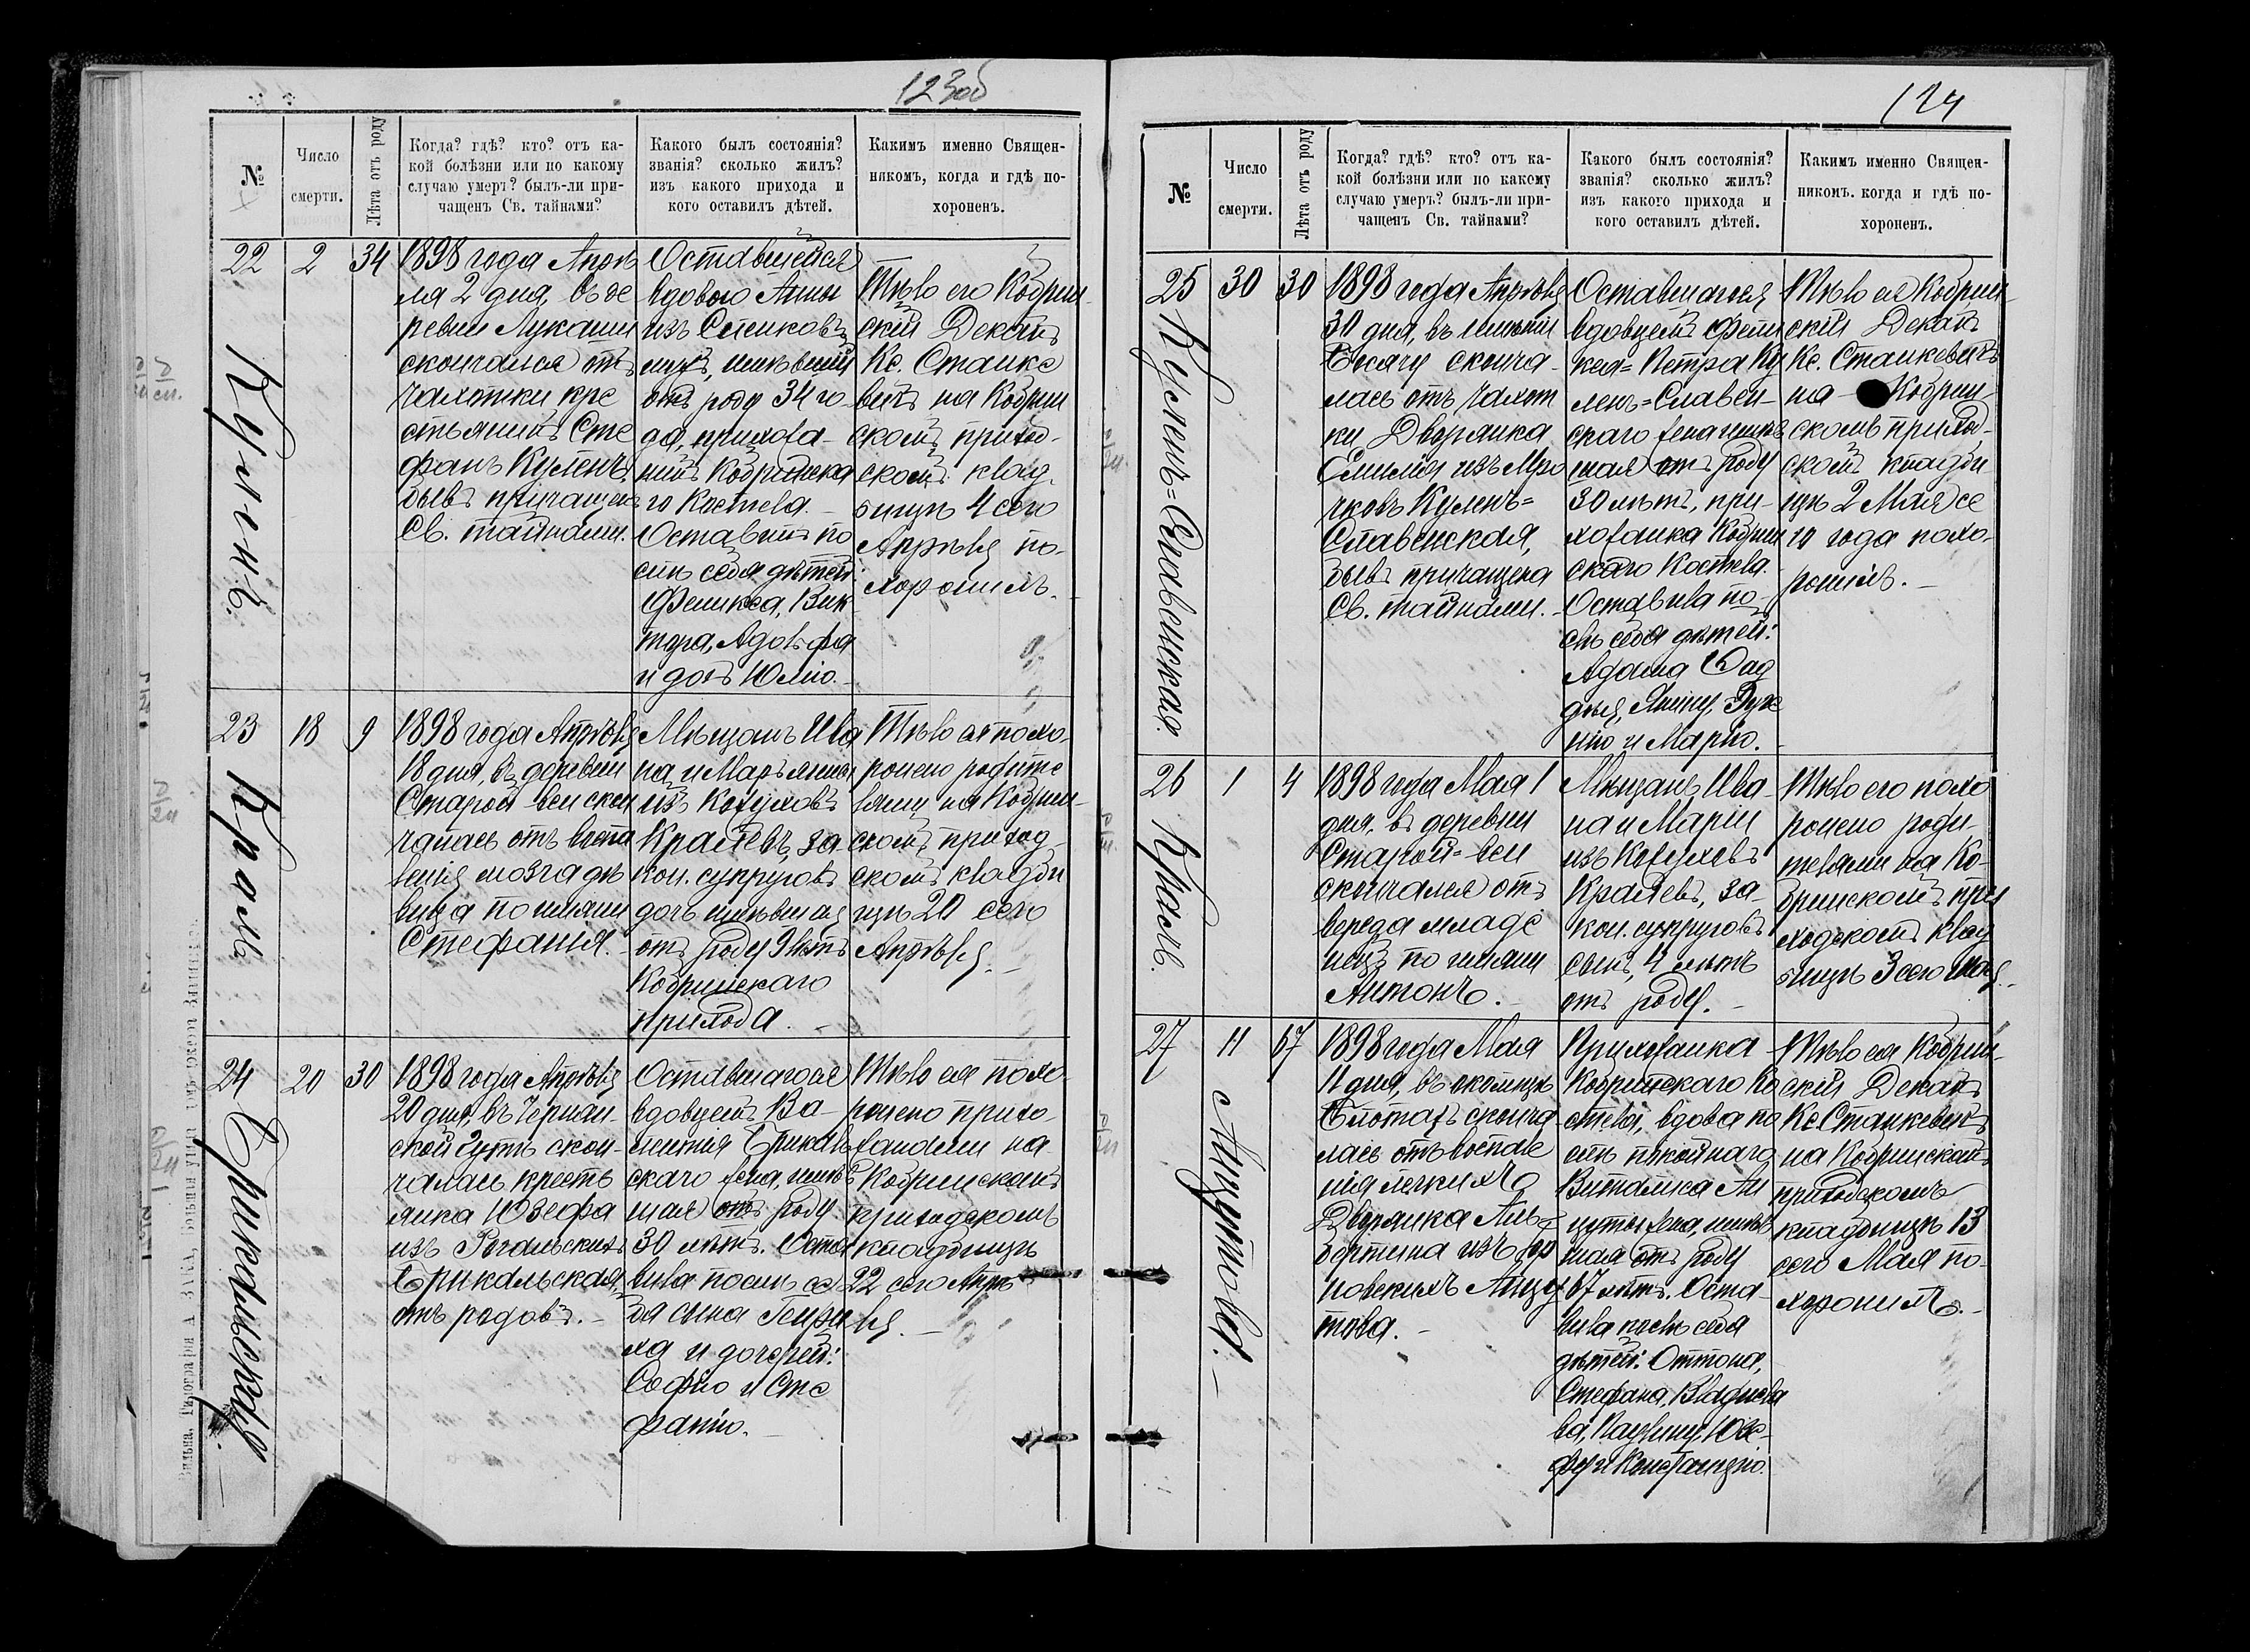 123об
№
Число
смерти.
Лѣта отъ роду
Когда? гдѣ? кто? отъ ка-
кой болѣзни или по какому
случаю умеръ? былъ-ли при-
чащенъ Св. тайнами?
Какого былъ состоянія?
званія? сколько жилъ?
изъ какого прихода и
кого оставилъ дѣтей.
Какимъ именно Священ-
никомъ, когда и гдѣ по-
хороненъ.
22
2
34
Куленъ.
1898 года Апрѣ
ля 2 дня, въ де
ревни Лукаши
скончался отъ
чахотки кре
стьянинъ Сте
фанъ Куленъ,
бывъ причащенъ
Св. тайнами.
Оставшейся
вдовою Анны
изъ
мужъ, имѣвшій
отъ роду 34 го-
да, прихожа-
нинъ Кобринска
го Костела.
Оставилъ по
слѣ себя дѣтей:
Феликса, Вик
тора, Адольфа
и дочь Юлію.
Тѣло его Кобрин-
скій Деканъ
Кс. Станке
вичъ на Кобрин
скомъ приход-
скомъ клад-
бищѣ 4 сего
Апрѣля по-
хоронилъ.
23
18
9
Краль
1898 года Апрѣля
18 дня, въ деревни
Старой-веси скон
чалась отъ воспа
ленія мозга дѣ
вица по имени
Стефанія.
Мѣщанъ Ива
на и Марьянны
изъ Кожуховъ
Кралевъ, за-
кон. супруговъ
дочь имѣвшая
отъ роду 9 лѣтъ
Кобринскаго
прихода.
Тѣло ея похо-
ронено родите
лями на Кобрин-
скомъ приход
скомъ кладби
щѣ 20 сего
Апрѣля.
24
20
30
Брикальская
1898 года Апрѣля
20 дня, въ Черніан-
ской Гутѣ скон-
чалась кресть
янка Юзефа
изъ Рогальскихъ
Брикальская,
отъ родовъ.
Оставшагося
вдовцемъ Ва-
лентія Брикаль
скаго жена, имѣв
шая отъ роду
30 лѣтъ. Оста
вила послѣ се-
бя сына Генри
ха и дочерей:
Софію и Сте
фанію.
Тѣло ея похо
ронено прихо-
жанами на
Кобринскомъ
приходскомъ
кладбищѣ
22 сего Апрѣ
ля.
124
№
Число
смерти.
Лѣта отъ роду
Когда? гдѣ? кто? отъ ка-
кой болѣзни или по какому
случаю умеръ? былъ-ли при-
чащенъ Св. тайнами?
Какого былъ состоянія?
званія? сколько жилъ?
изъ какого прихода и
кого оставилъ дѣтей.
Какимъ именно Священ-
никомъ. когда и гдѣ по-
хороненъ.
25
30
30
Куленъ=Славенская.
1898 года Апрѣля
30 дня, въ имѣніи
сконча-
лась отъ чахот
ки Дворянка
Емилія, изъ
Куленъ=
Славенская,
бывъ причащена
Св. тайнами.
Оставшагося
вдовцемъ Фели
кса=Петра Ку
ленъ=Славен-
скаго жена имѣв
шая отъ роду
30 лѣтъ, при-
хожанка Кобрин
скаго Костела.
Оставила по-
слѣ себя дѣтей:
Адама Фад
дея, Янину,
и Марію.
Тѣло ея Кобрин-
скій Деканъ
Кс. Станкевичъ
на Кобрин-
скомъ приход-
скомъ кладби
щѣ 2 Мая се
го года похо-
ронилъ.
26
1
4
Краль.
1898 года Мая 1
дня, въ деревни
Старой=веси
скончался отъ
вереда младе
нецъ по имени
Антонъ.
Мѣщанъ Ива-
на и Маріи
изъ Кожуховъ
Кралевъ, за-
кон. супруговъ
сынъ, 4 лѣтъ
отъ роду.
Тѣло его похо
ронено роди-
телями на Ко-
бринскомъ при
ходскомъ клад
бищѣ 3 сего Мая.
27
11
67
Лицутова.
1898 года Мая
11 дня, въ околицѣ
Болотахъ сконча
лась отъ воспале
нія легкихъ
Дворянка Аль-
бертина изъ
Лицу
това.
Прихожанка
Кобринскаго Ко
стела, вдова по
слѣ покойнаго
Виталиса Ли
цуты жена, имѣв
шая отъ роду
67 лѣтъ. Оста-
вила послѣ себя
дѣтей: Оттона,
Стефана, Владисла
ва, Паулину, Юзе-
фу и Констанцію.
Тѣло ея Кобрин-
скій Деканъ
Кс Станкевичъ
на Кобринскомъ
приходскомъ
кладбищѣ 13
сего Мая по-
хоронилъ.